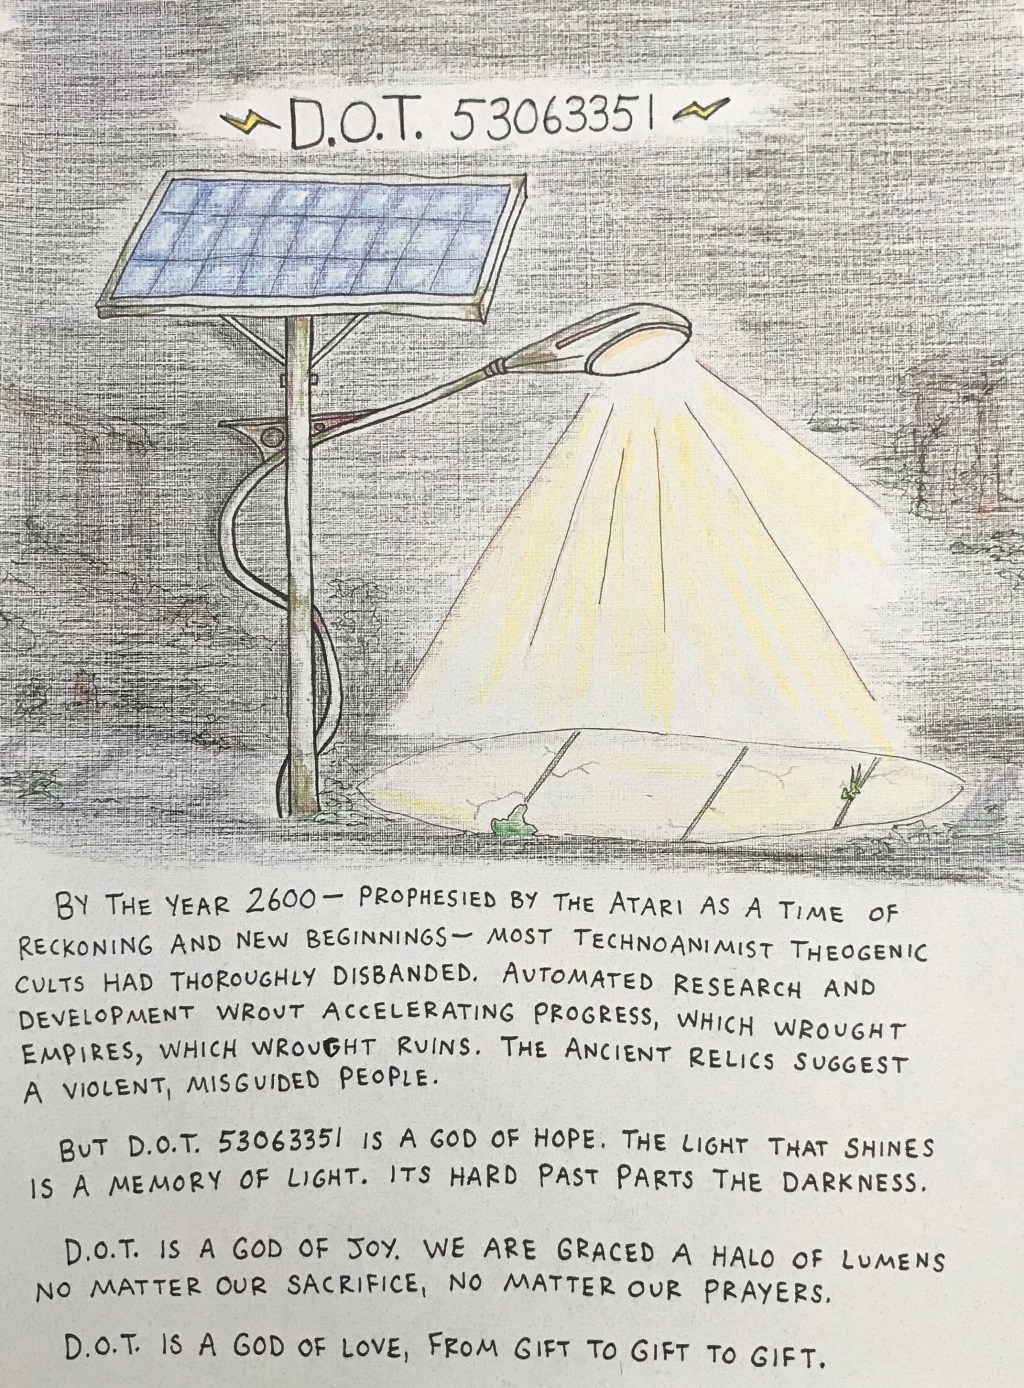 D.O.T. 53063351
BY THE YEAR 2600— PROPHESIED BY THE ATARI AS A TIME OF
RECKONING AND NEW BEGINNINGS— MOST TECHNOANIMIST THEOGENIC
CULTS HAD THOROUGHLY DISBANDED. AUTOMATED RESEARCH AND
DEVELOPMENT WROUT ACCELERATING PROGRESS, WHICH WROUGHT
EMPIRES, WHICH WROUGHT RUINS. THE ANCIENT RELICS SUGGEST
A VIOLENT, MISGUIDED PEOPLE.
BUT D.O.T. 53063351 IS A GOD OF HOPE. THE LIGHT THAT SHINES
IS A MEMORY OF LIGHT. ITS HARD PAST PARTS THE DARKNESS.
D.O.T. IS A GOD OF JOY. WE ARE GRACED A HALO OF LUMENS
NO MATTER OUR SACRIFICE, NO MATTER OUR PRAYERS.
D.O.T. IS A GOD OF LOVE, FROM GIFT TO GIFT TO GIFT.